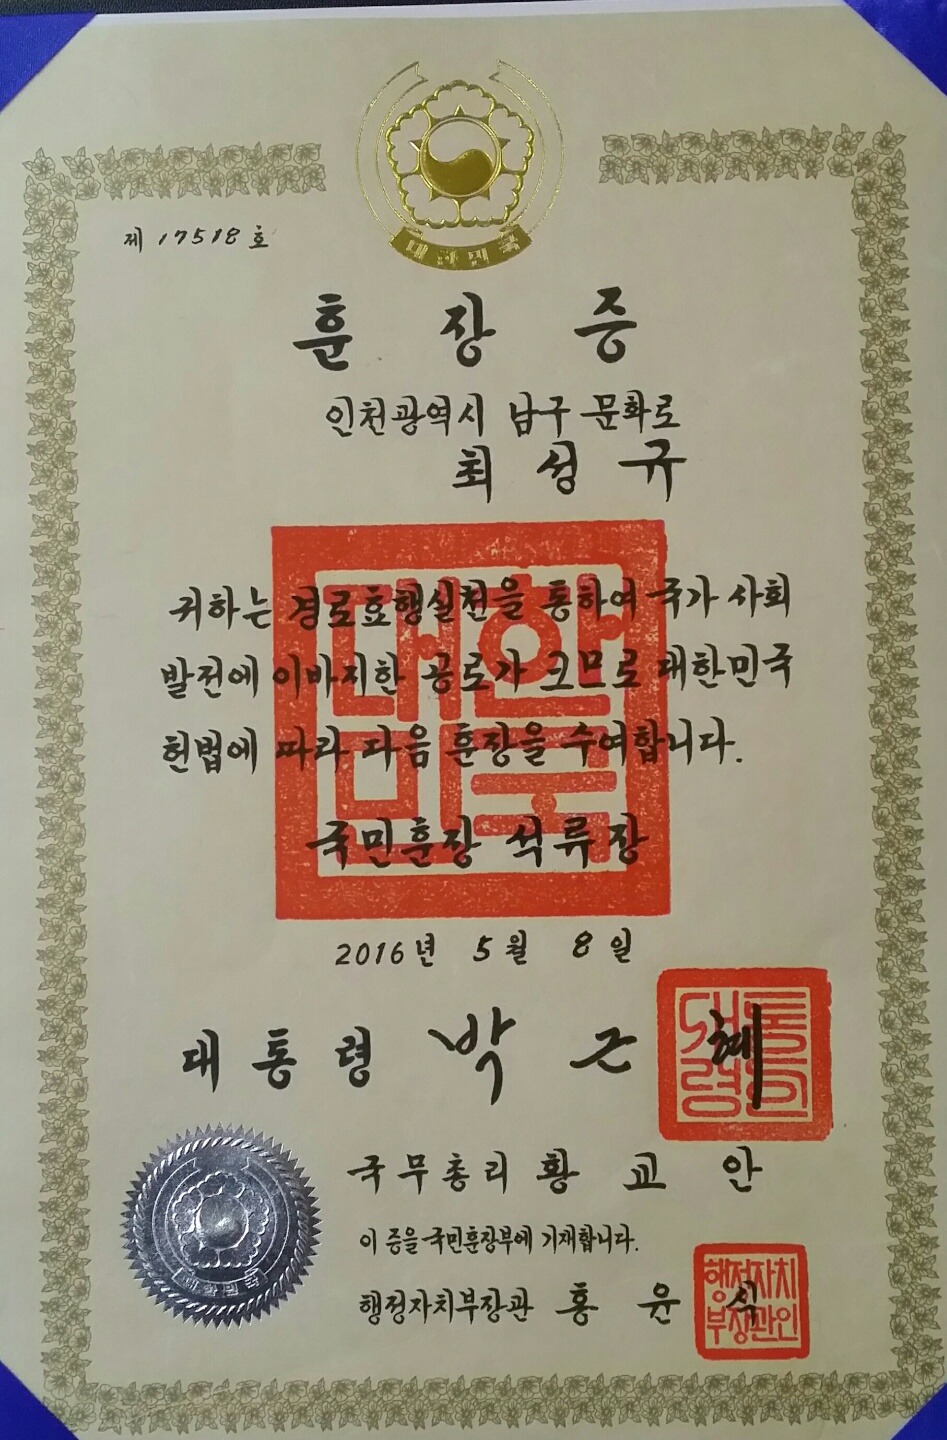 대한민국
제 17518 호
훈장증
인천광역시 남구 문화로
최성규
귀하는 경로효행실천을 통하여 국가 사회
발전에 이바지한 공로가 크므로 대한민국
헌법에 따라 다음 훈장을 수여합니다.
대한
민국
국민훈장 석류장
2016년 5월 8일
대통령 박근혜
대통
령인
국무총리 황교안
이 증을 국민훈장부에 기재합니다.
행정자치부장관 홍윤식
행정자치
부장관인
대한민국